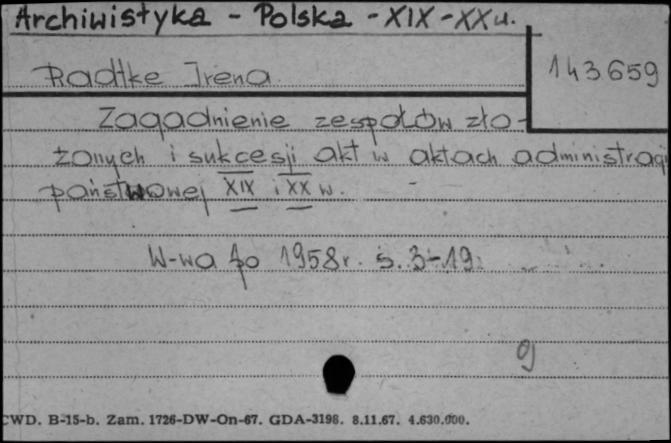 Archiwistyka - Polska - XIX - XX w.
Radtke Irena
143659
Zagadnienie zespołów zło-
żonych i sukcesji akt w aktach administracji
państwowej XIX i XX w.
W-wa 1958 r. s. 3-19.
CWD. B-15-b. Zam. 1726-DW-On-67. GDA-3198. 8.11.67. 4.630.000.